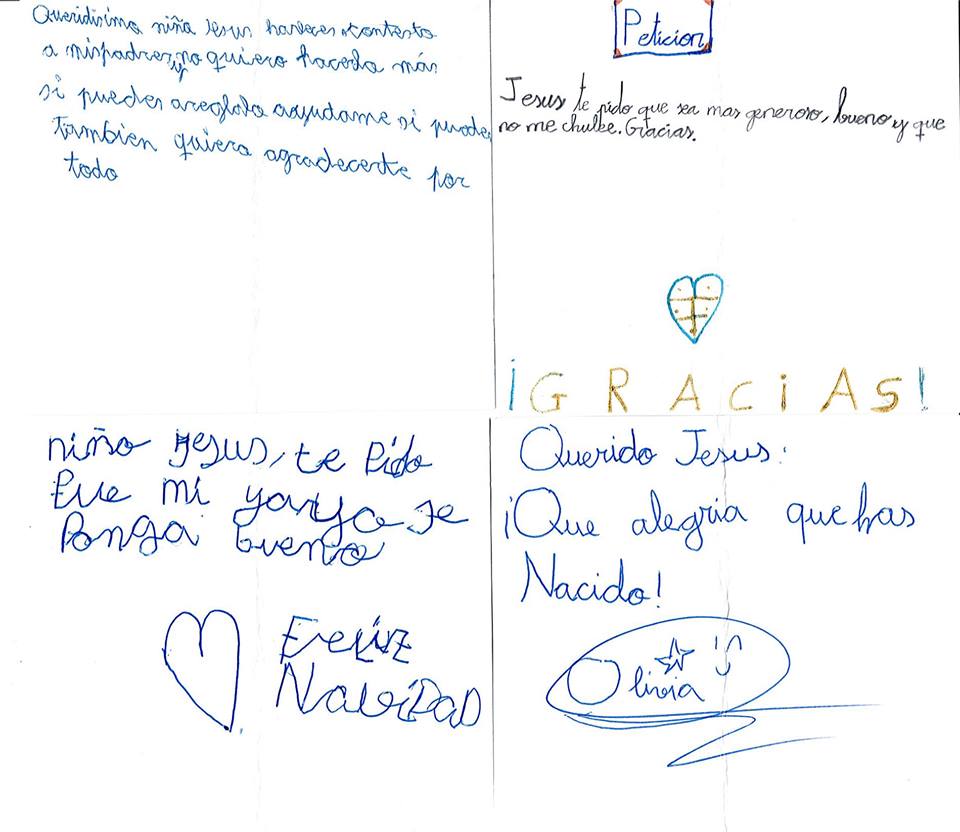 Queridisima niña Jesus haveces contesto
a mis padres y no quiero hacerlo más
si puedes areglolo ayudame si puedes
tambien quiero agradecerte por
todo
Peticion
Jesus te pido que sea mas generoso, bueno y que
no me chulee. Gracias.
¡GRACiAS!
niño Jesus, te Pido
Que mi yayo se
Ponga bueno
Feliz
NaviDaD
Querido Jesus:
¡Que alegria que has
Nacido!
Olivia